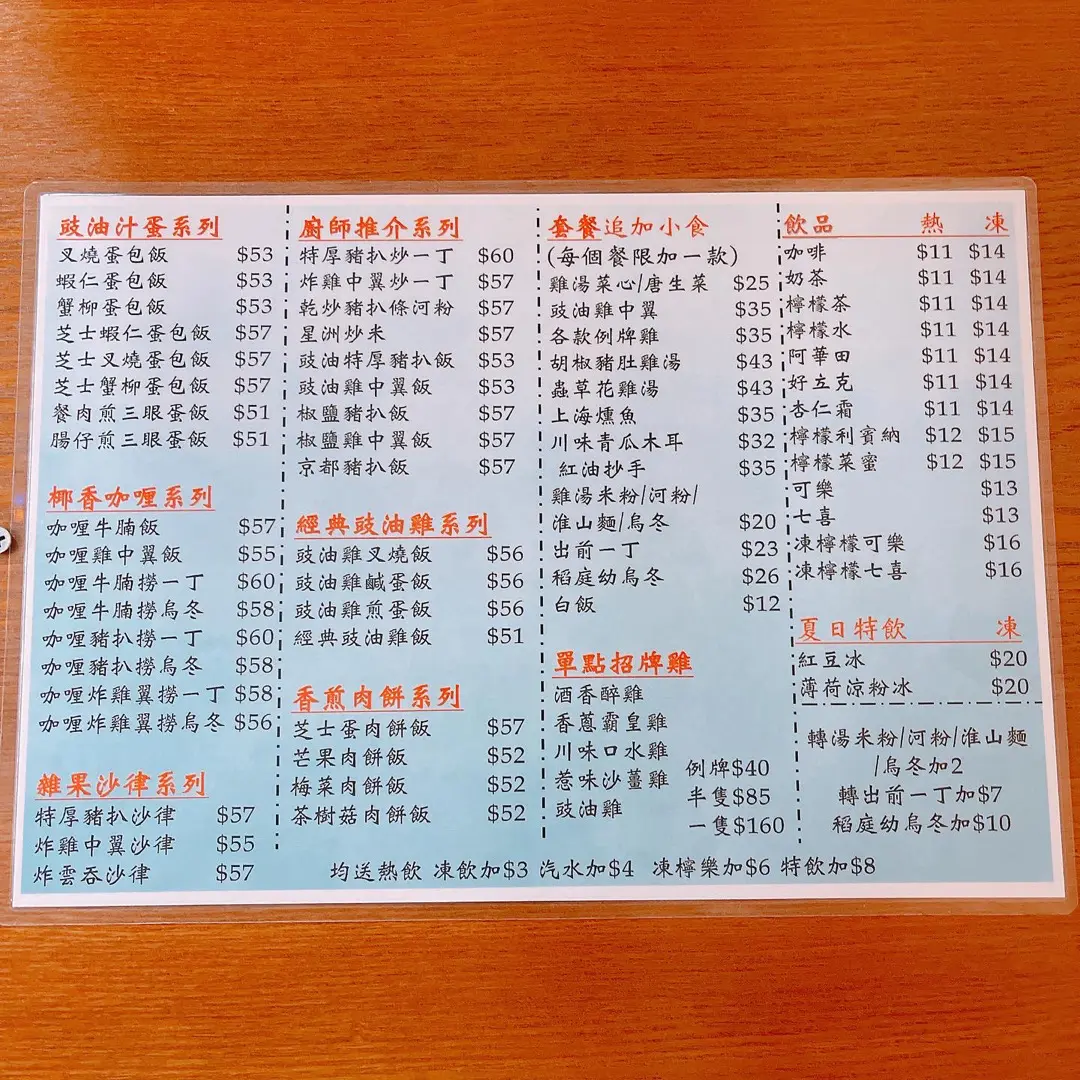 豉油汁蛋系列
叉燒蛋包飯 $53
蝦仁蛋包飯 $53
蟹柳蛋包飯 $53
芝士蝦仁蛋包飯 $57
芝士叉燒蛋包飯 $57
芝士蟹柳蛋包飯 $57
餐肉煎三眼蛋飯 $51
腸仔煎三眼蛋飯 $51
椰香咖喱系列
咖喱牛腩飯 $57
咖喱雞中翼飯 $55
咖喱牛腩撈一丁 $60
咖喱牛腩撈烏冬 $58
咖喱豬扒撈一丁 $60
咖喱豬扒撈烏冬 $58
咖喱炸雞翼撈一丁 $58
咖喱炸雞翼撈烏冬 $56
雜果沙律系列
特厚豬扒沙律 $57
炸雞中翼沙律 $55
炸雲吞沙律 $57
廚師推介系列
特厚豬扒炒一丁 $60
炸雞中翼炒一丁 $57
乾炒豬扒條河粉 $57
星洲炒米 $57
豉油特厚豬扒飯 $53
豉油雞中翼飯 $53
椒鹽豬扒飯 $57
椒鹽雞中翼飯 $57
京都豬扒飯 $57
經典豉油雞系列
豉油雞叉燒飯 $56
豉油雞鹹蛋飯 $56
豉油雞煎蛋飯 $56
經典豉油雞飯 $51
香煎肉餅系列
芝士蛋肉餅飯 $57
芒果肉餅飯 $52
梅菜肉餅飯 $52
茶樹菇肉餅飯 $52
套餐追加小食
(每個餐限加一款)
雞湯菜心/唐生菜 $25
豉油雞中翼 $35
各款例牌雞 $35
胡椒豬肚雞湯 $43
蟲草花雞湯 $43
上海燻魚 $35
川味青瓜木耳 $32
紅油抄手 $35
雞湯米粉/河粉/
淮山麵/烏冬 $20
出前一丁 $23
稻庭幼烏冬 $26
白飯 $12
單點招牌雞
酒香醉雞
香蔥霸皇雞
川味口水雞
惹味沙薑雞
豉油雞
例牌$40
半隻$85
一隻$160
飲品 熱 凍
咖啡 $11 $14
奶茶 $11 $14
檸檬茶 $11 $14
檸檬水 $11 $14
阿華田 $11 $14
好立克 $11 $14
杏仁霜 $11 $14
檸檬利賓納 $12 $15
檸檬菜蜜 $12 $15
可樂 $13
七喜 $13
凍檸檬可樂 $16
凍檸檬七喜 $16
夏日特飲 凍
紅豆冰 $20
薄荷涼粉冰 $20
轉湯米粉/河粉/淮山麵
/烏冬加2
轉出前一丁加$7
稻庭幼烏冬加$10
均送熱飲 凍飲加$3 汽水加$4 凍檸樂加$6 特飲加$8